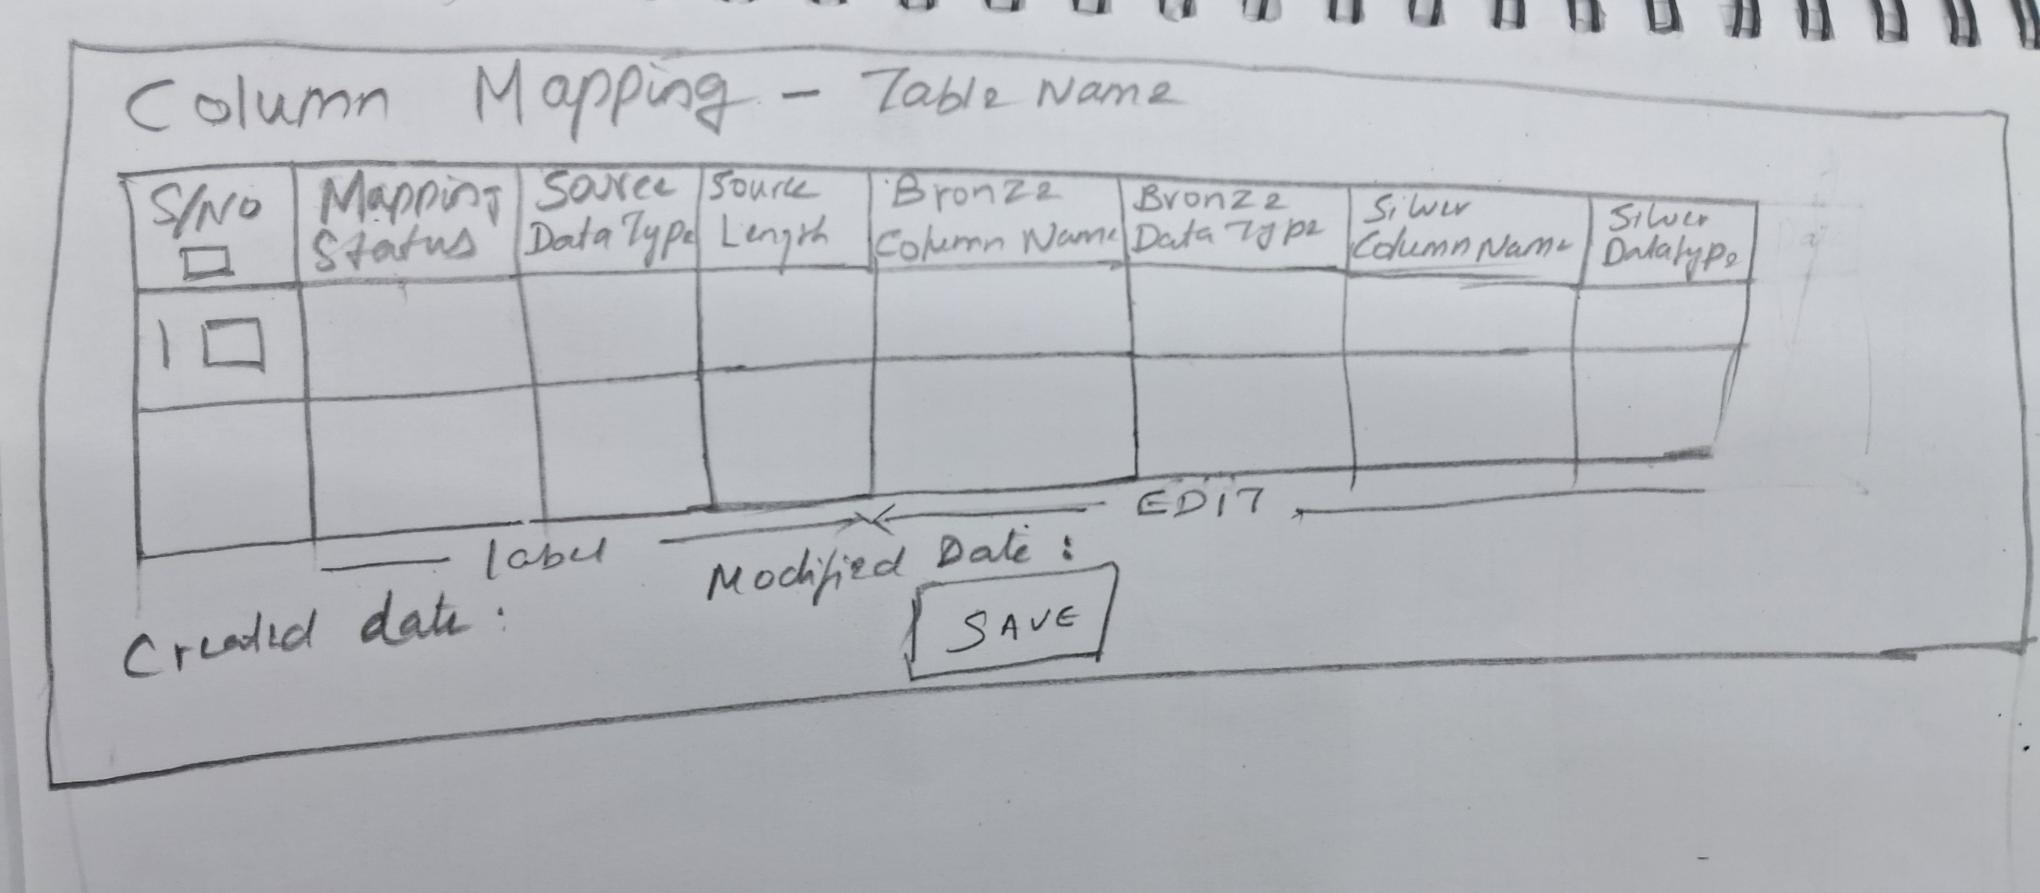 Column Mapping - Table Name
S/NO
Mapping Status
Source Data Type
Source Length
Bronze Column Name
Bronze Data Type
Silver Column Name
Silver Datatype
1
label
EDIT
Modified Date :
Created date :
SAVE